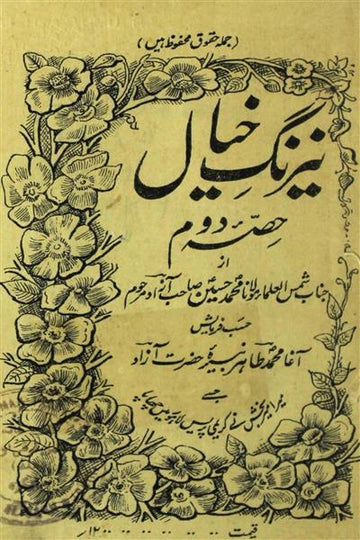 (جملہ حقوق محفوظ ہیں)
نیرنگ خیال
حصہ دوم
از
جناب شمس العلماء مولانا محمد حسین صاحب آزاد مرحوم
حسب فرمایش
آغا محمد طاہر نبیرۂ حضرت آزاد
جسے
قیمت ۱۲